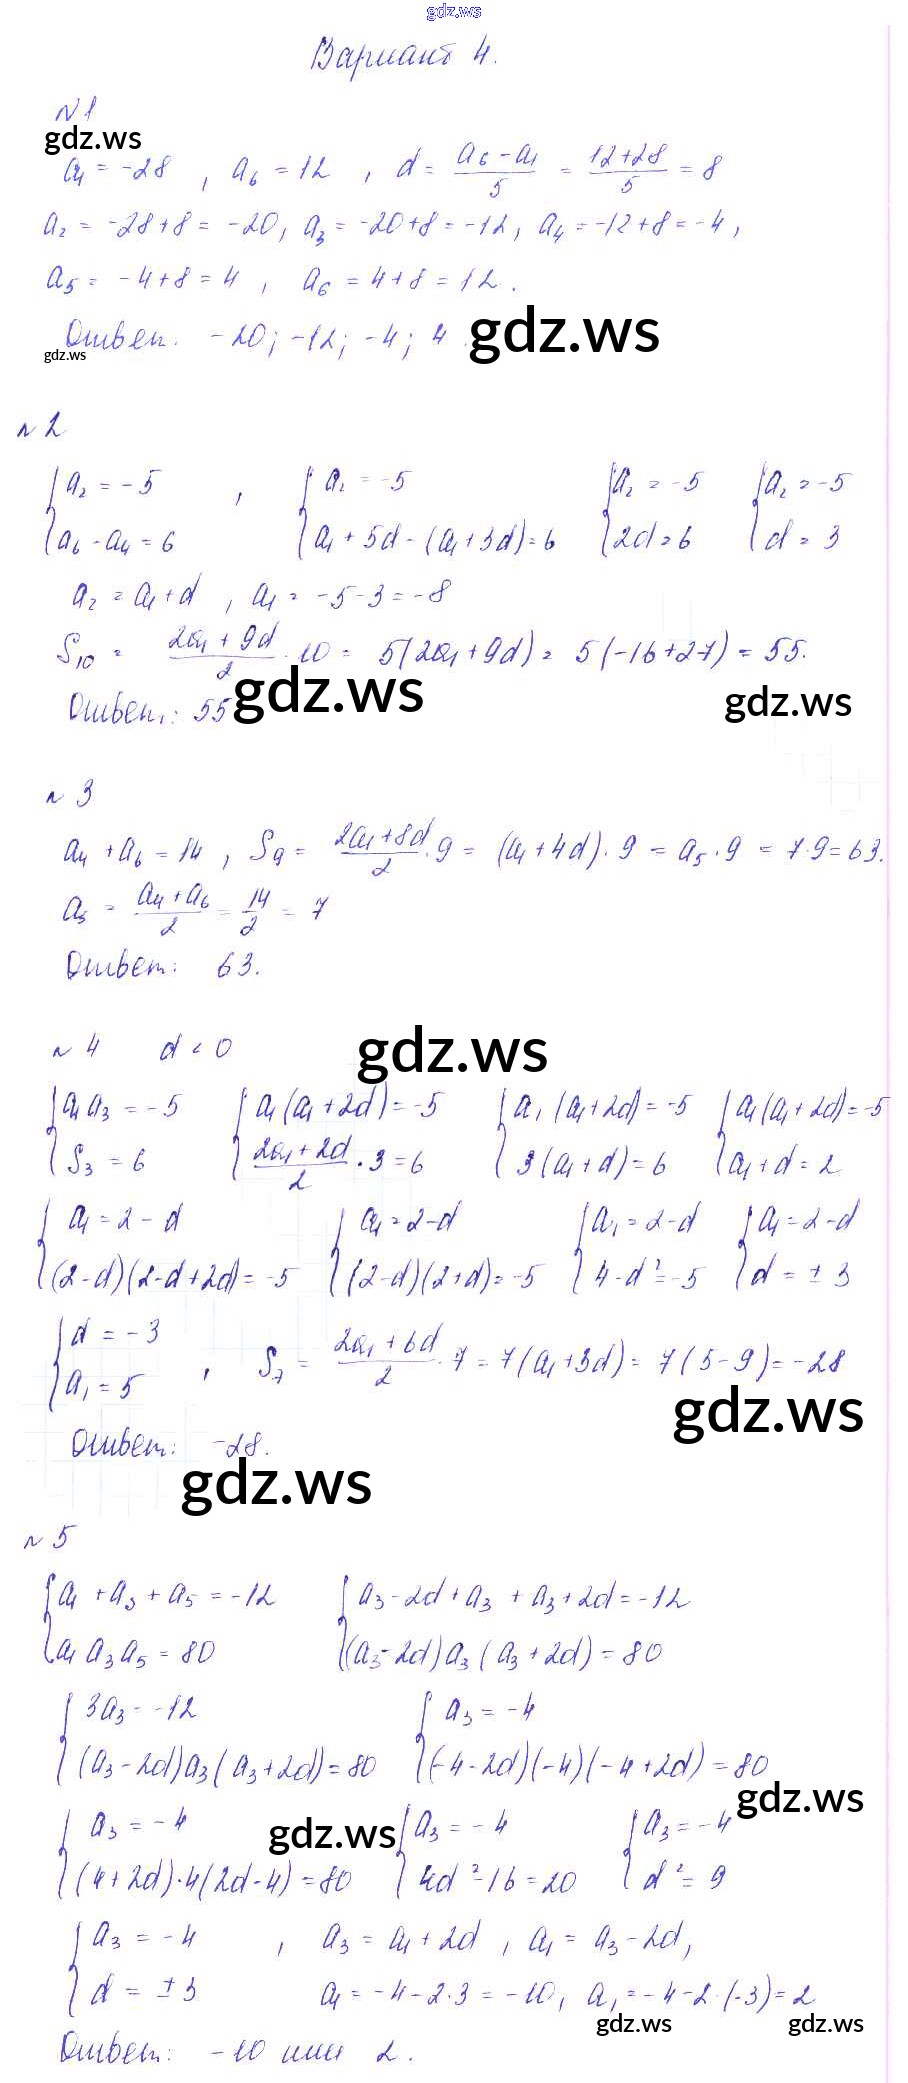 gdz.ws
Вариант 4.
№1
gdz.ws
a₁ = -28 , a₆ = 12 , d = (a₆ - a₁)/5 = (12+28)/5 = 8
a₂ = -28+8 = -20, a₃ = -20+8 = -12, a₄ = -12+8 = -4,
a₅ = -4+8 = 4 , a₆ = 4+8 = 12.
Ответ. -20; -12; -4; 4. gdz.ws
gdz.ws
№2
{a₂ = -5 , {a₂ = -5 {a₂ = -5 {a₂ = -5
a₆ - a₄ = 6 a₁ + 5d - (a₁ + 3d) = 6 2d = 6 d = 3
a₂ = a₁ + d , a₁ = -5-3 = -8
S₁₀ = (2a₁ + 9d)/2 · 10 = 5(2a₁ + 9d) = 5(-16+27) = 55.
Ответ: 55 gdz.ws gdz.ws
№3
a₄ + a₆ = 14 , S₉ = (2a₁ + 8d)/2 · 9 = (a₁ + 4d) · 9 = a₅ · 9 = 7·9 = 63.
a₅ = (a₄ + a₆)/2 = 14/2 = 7
Ответ: 63.
№4 d < 0 gdz.ws
{a₁ a₃ = -5 {a₁(a₁ + 2d) = -5 {a₁(a₁+2d) = -5 {a₁(a₁+2d) = -5
S₃ = 6 (2a₁ + 2d)/2 · 3 = 6 3(a₁ + d) = 6 a₁ + d = 2
{a₁ = 2 - d {a₁ = 2-d {a₁ = 2-d {a₁ = 2-d
(2-d)(2-d+2d) = -5 (2-d)(2+d) = -5 4-d² = -5 d = ±3
{d = -3
a₁ = 5 , S₇ = (2a₁ + 6d)/2 · 7 = 7(a₁+3d) = 7(5-9) = -28
gdz.ws
Ответ: -28.
gdz.ws
№5
{a₁ + a₃ + a₅ = -12 {a₃ - 2d + a₃ + a₃ + 2d = -12
a₁ a₃ a₅ = 80 (a₃ - 2d) a₃ (a₃ + 2d) = 80
{3a₃ = -12 {a₃ = -4
(a₃ - 2d) a₃ (a₃ + 2d) = 80 (-4-2d)(-4)(-4+2d) = 80
gdz.ws
{a₃ = -4 gdz.ws {a₃ = -4 {a₃ = -4
(4+2d)·4(2d-4) = 80 4d² - 16 = 20 d² = 9
{a₃ = -4 , a₃ = a₁ + 2d , a₁ = a₃ - 2d,
d = ±3 a₁ = -4-2·3 = -10, a₁ = -4-2·(-3) = 2
gdz.ws gdz.ws
Ответ: -10 или 2.